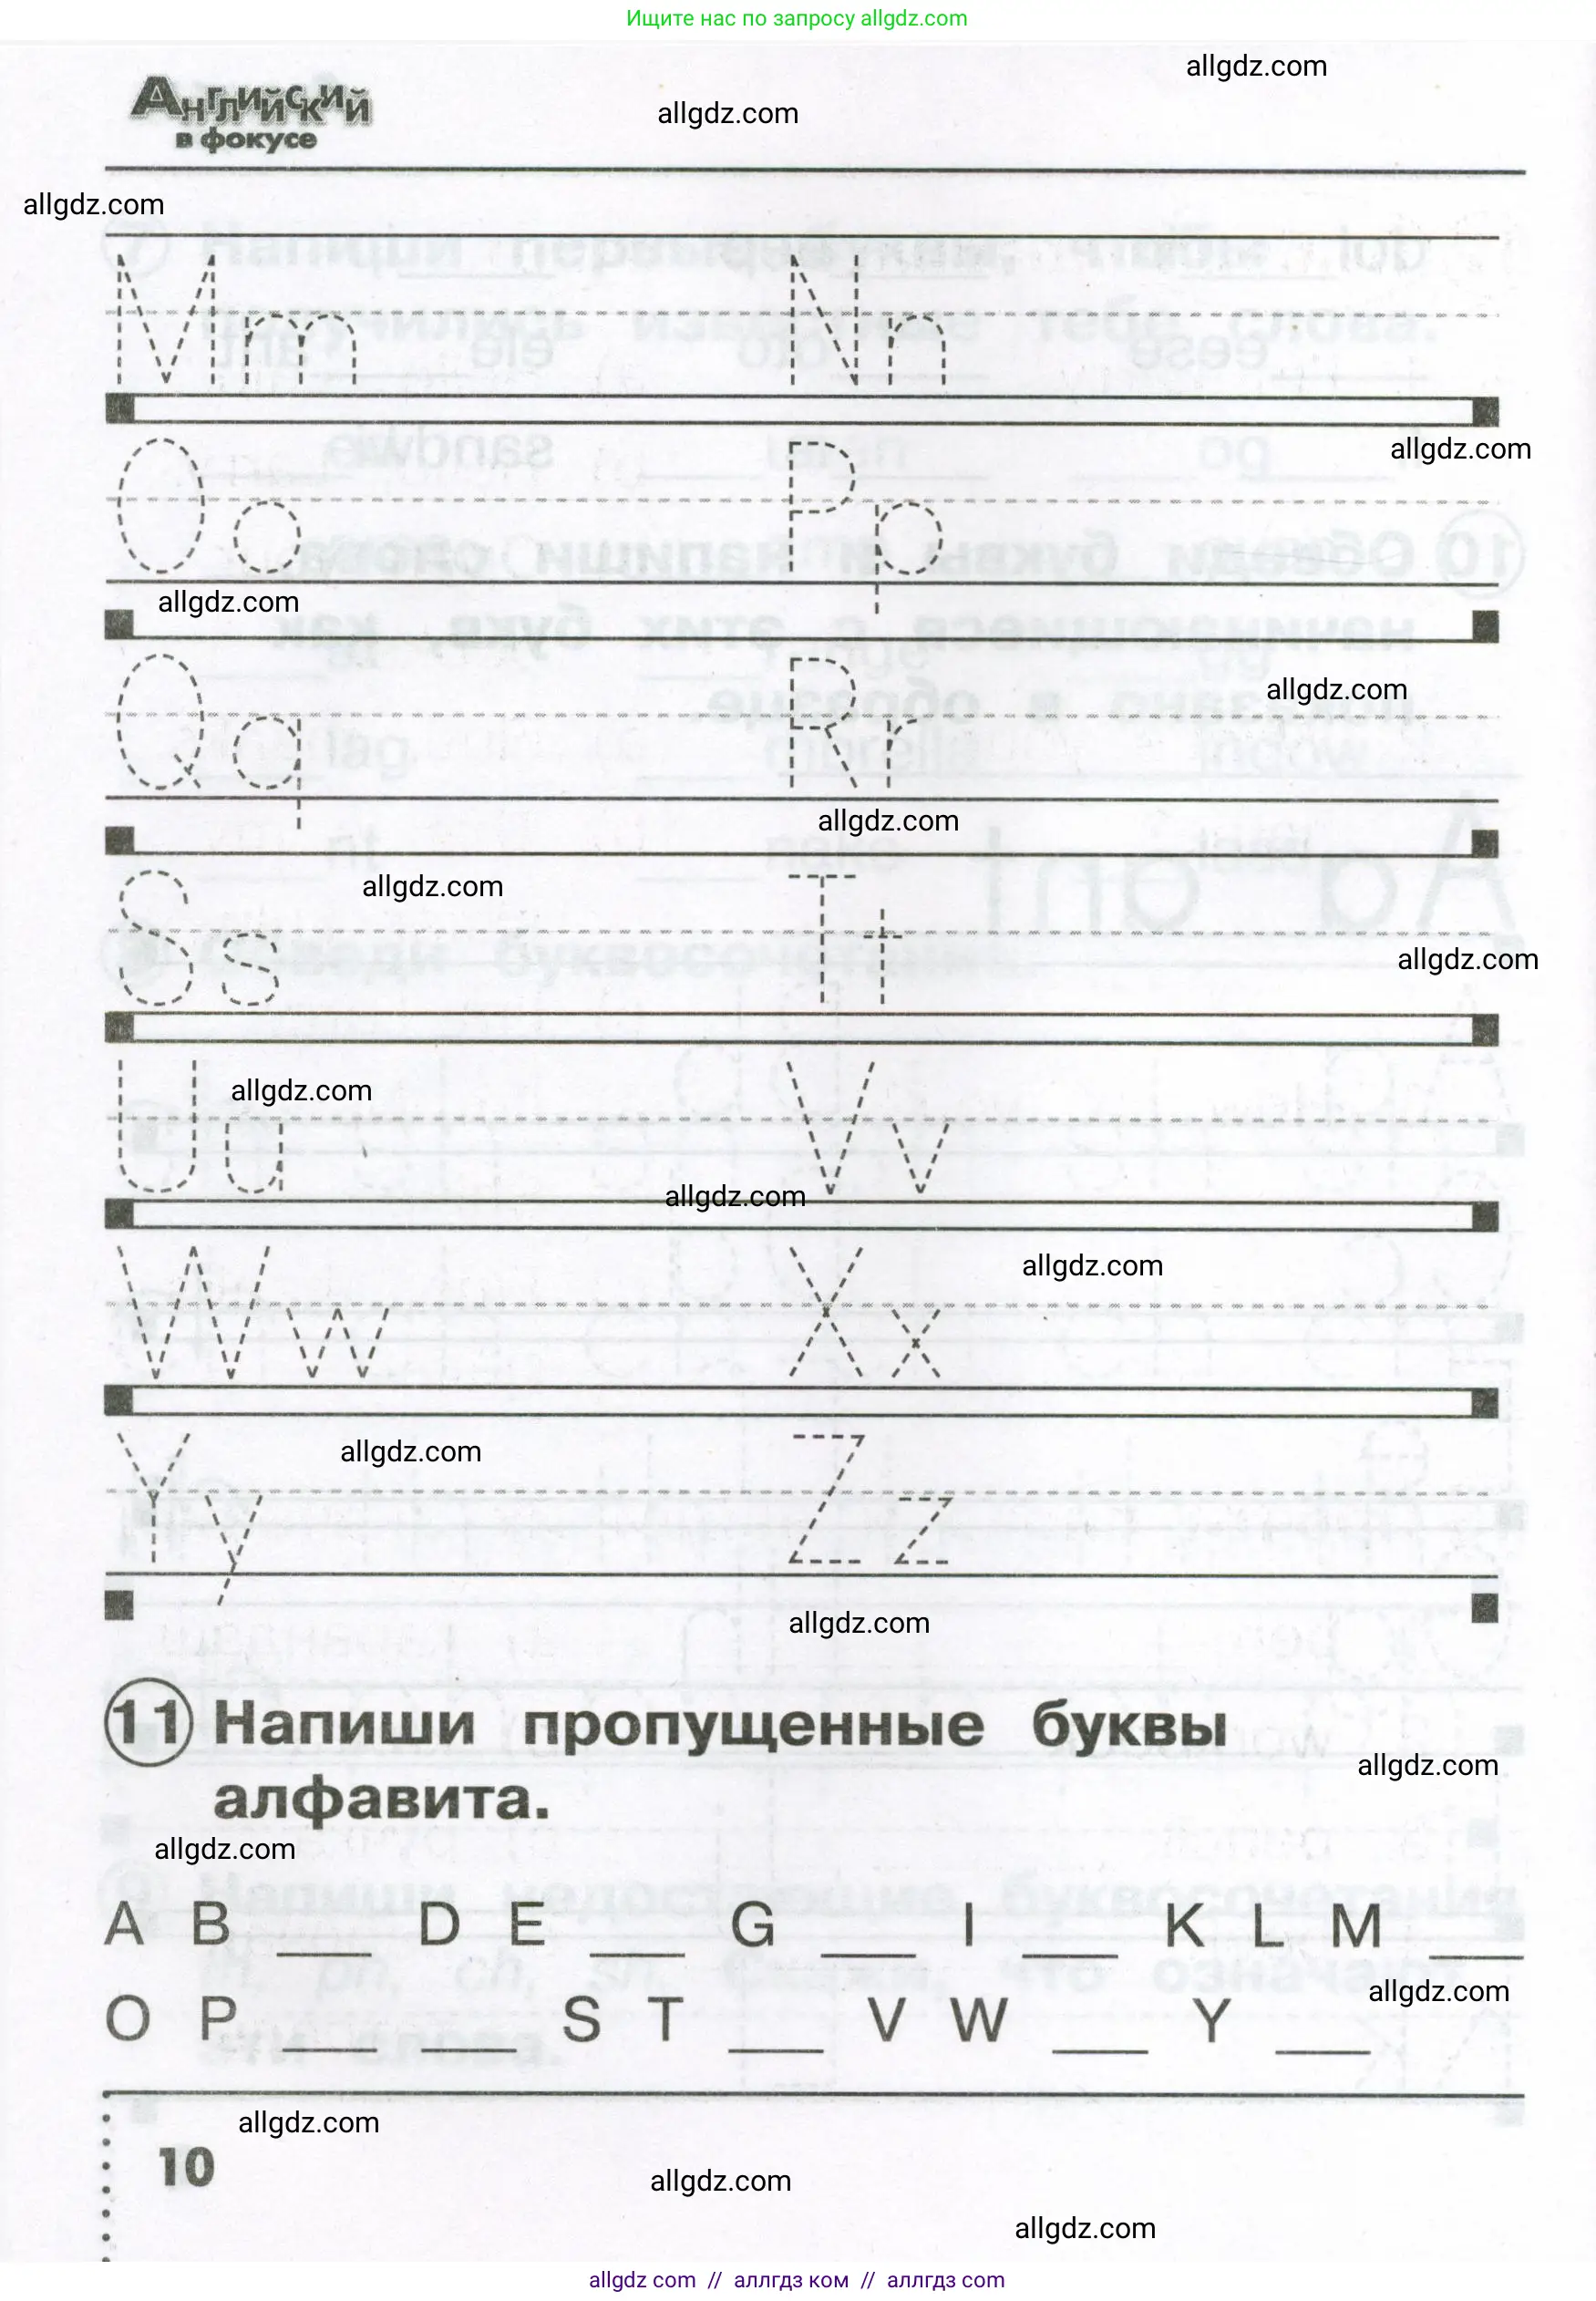 Ищите нас по запросу allgdz.com
allgdz.com
Английский
в фокусе
allgdz.com
allgdz.com
Mm Nn
allgdz.com
Oo Pp
allgdz.com
allgdz.com
Qq Rr
allgdz.com
allgdz.com
Ss Tt
allgdz.com
allgdz.com
Uu Vv
allgdz.com
allgdz.com
Ww Xx
allgdz.com
Yy Zz
allgdz.com
11 Напиши пропущенные буквы
алфавита.
allgdz.com
allgdz.com
A B ___ D E ___ G ___ I ___ K L M ___
allgdz.com
O P ___ ___ S T ___ V W ___ Y ___
allgdz.com
10
allgdz.com
allgdz.com
allgdz com // аллгдз ком // аллгдз com